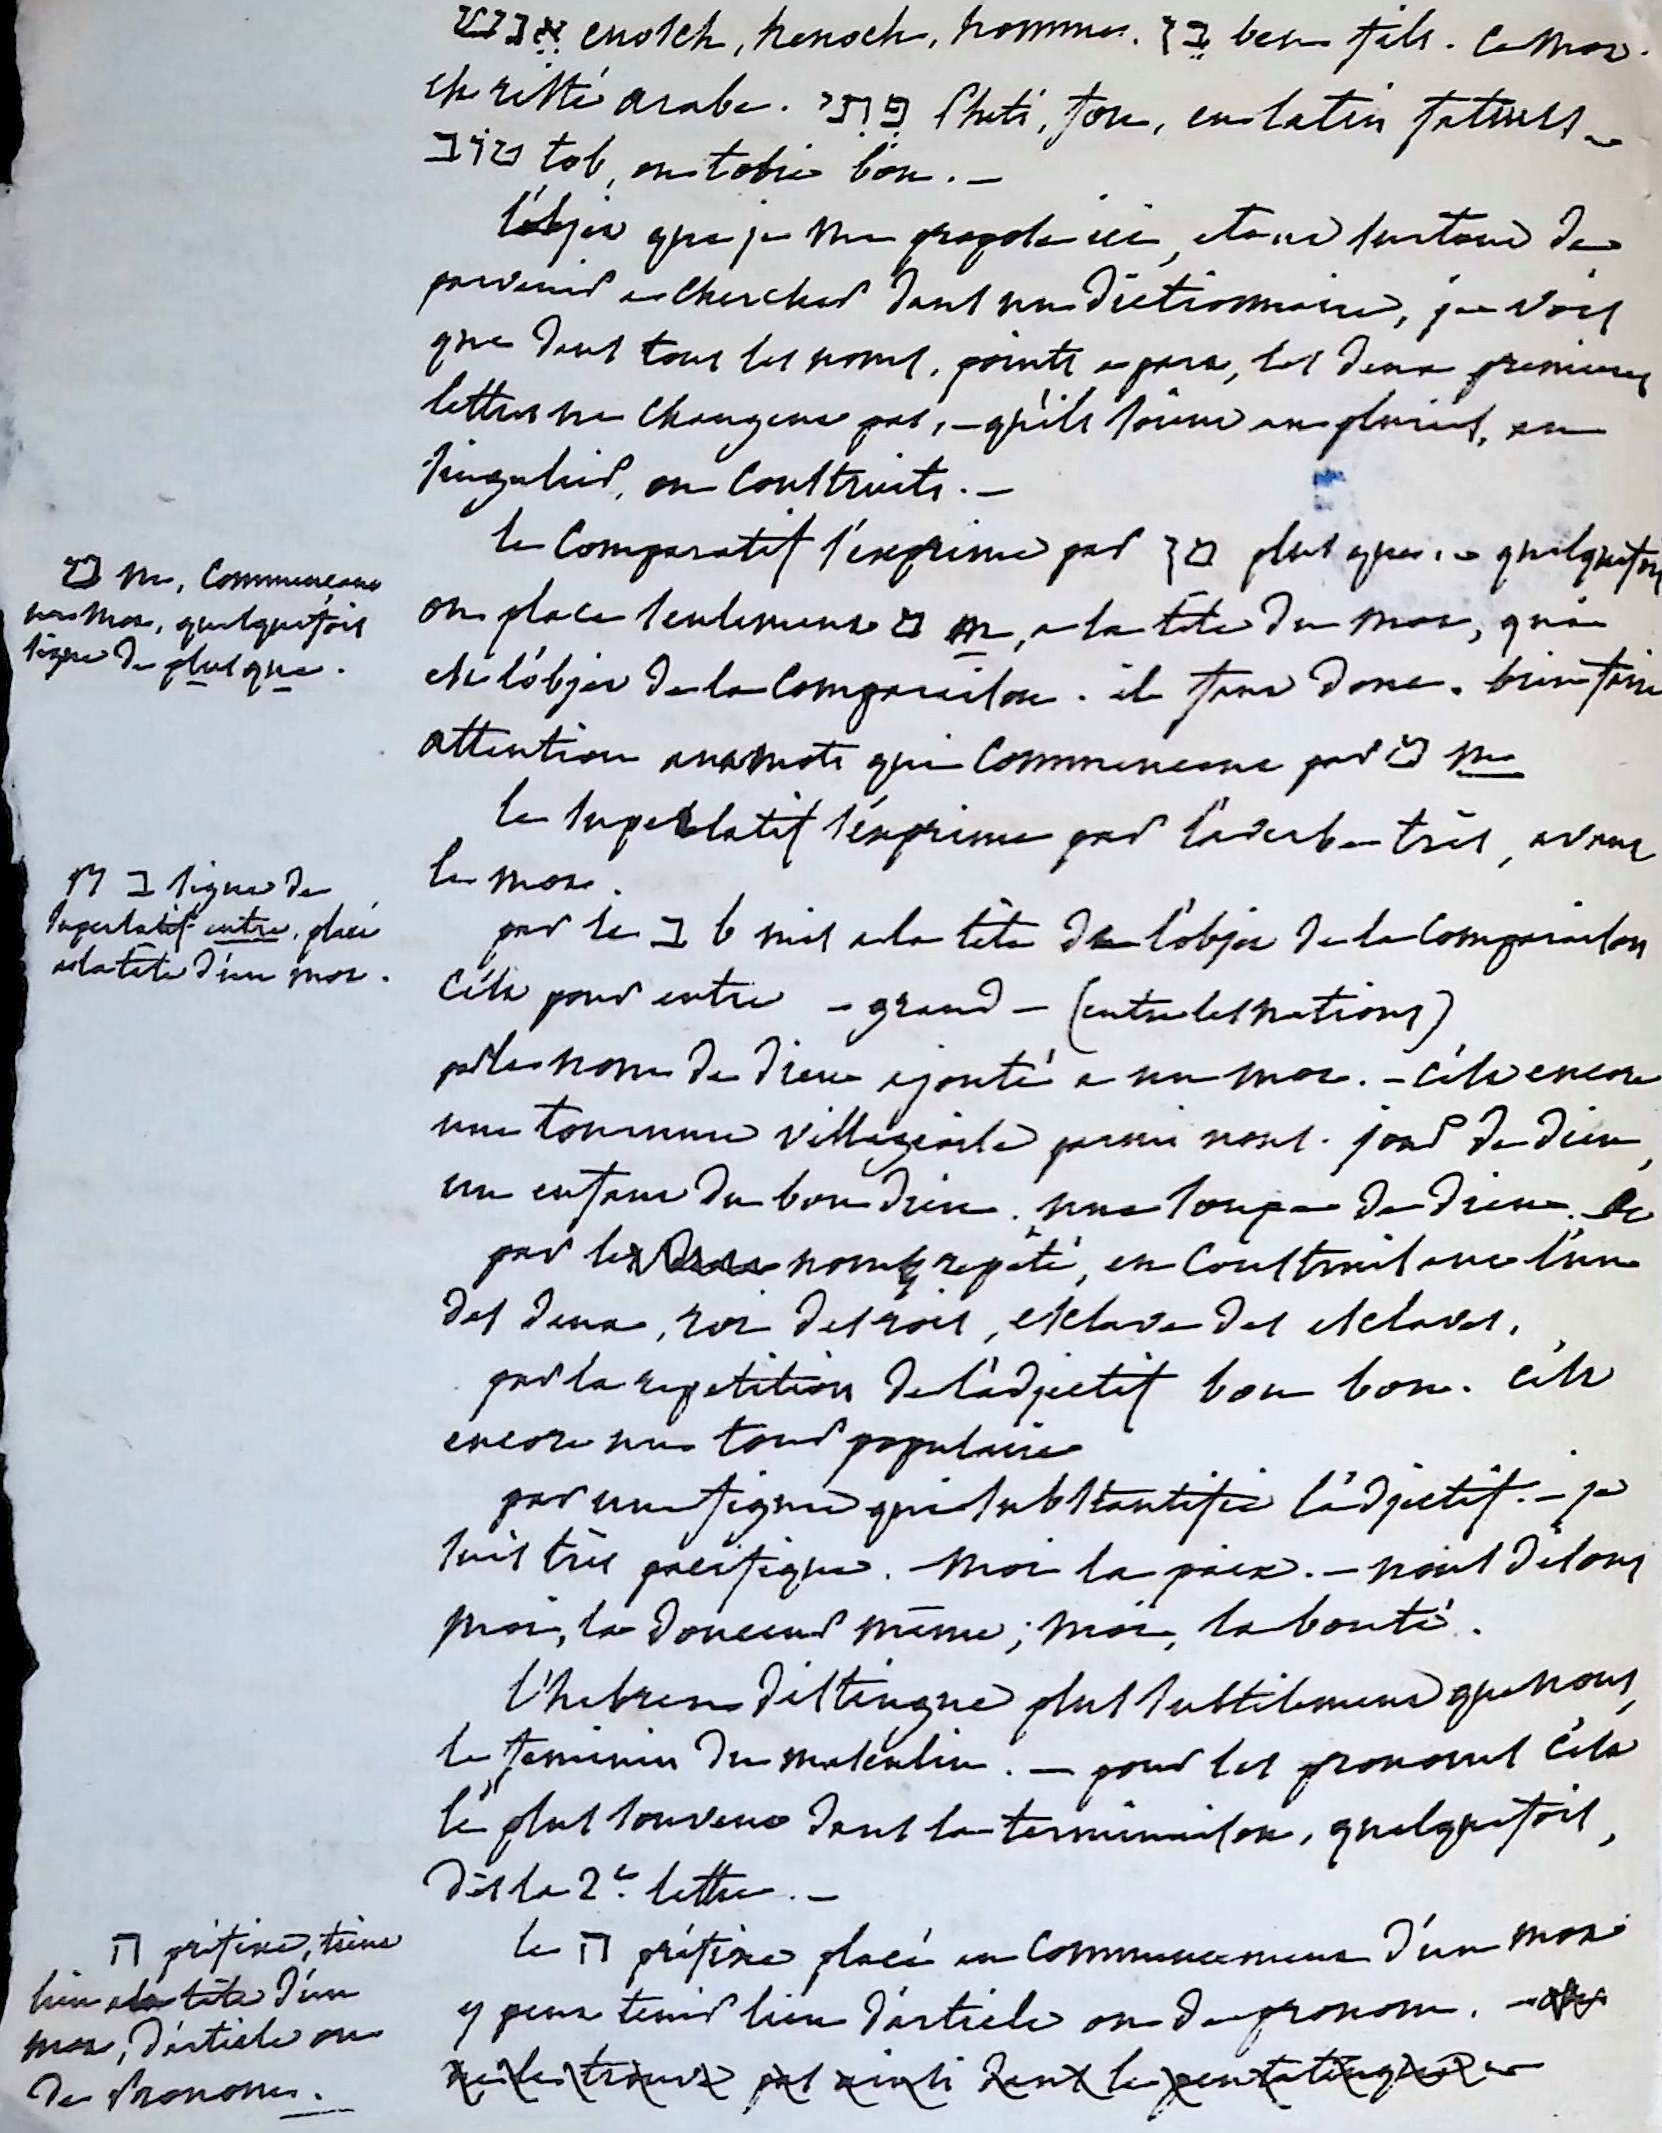 אֱנֹשׁ enosch, henoch, homme. בֵּן ben fils. Ce mot
est resté arabe. פֶּתִי Pheti, fou, en latin fatuus –
טוֹב tob, ou tobie bon. –
l'objet que je me propose ici, etant surtout de
parvenir a chercher dans un dictionnaire, je vois
que dans tous les noms, points a part, les deux premieres
lettres ne changent pas, – qu'ils soient au pluriel, au
singulier, ou construits. –
le Comparatif s'exprime par מן plus que. – quelquefois
on place seulement מ m, a la tête du mot, qui
est l'objet de la Comparaison. il faut donc bien faire
attention aux mots qui Commencent par מ m
le superlatif s'exprime par l'adverbe très, avant
le mot.
par le ב b mis a la tête de l'objet de la Comparaison
c'est pour entre – grand – (entre les nations)
par le nom de dieu ajouté a un mot. – c'est encore
une tournure villageoise parmi nous. jour de dieu,
un enfant du bon dieu. une soupe de dieu. &c
par le nom repeté, en construisant l'un
des deux, roi des rois, esclave des esclaves.
par la repetition de l'adjectif bon bon. c'est
encore un tour populaire
par une figure qui substantifie l'adjectif. – je
suis très pacifique. Moi la paix. – nous disons
moi, la douceur même; moi, la bonté.
l'hebreu distingue plus subtilement que nous,
le feminin du masculin. – pour les pronoms c'est
le plus souvent dans la terminaison, quelquefois,
dès la 2e. lettre. –
le ה préfixe placé au Commencement d'un mot
y peut tenir lieu d'article ou de pronom. –
ne le trouve pas ainsi dans le pentateuque –
מ m, Commençant
un mot, quelquefois
signe de plus que.
ב signe de
superlatif entre, placé
a la tête d'un mot.
ה préfixe, tient
lieu a la tête d'un
mot, d'article ou
de Pronom.